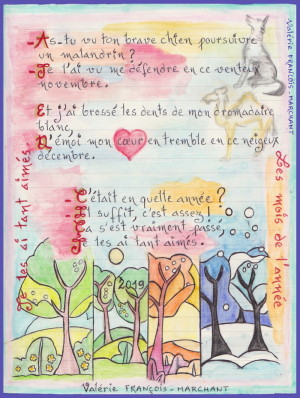 Valérie FRANÇOIS-MARCHANT
As-tu vu ton brave chien poursuivre
un malandrin ?
Je l'ai vu me défendre en ce venteux
novembre.
Et j'ai brossé les dents de mon dromadaire
blanc,
D'émoi mon cœur en tremble en ce neigeux
décembre.
C'était en quelle année ?
Il suffit, c'est assez !
Ça s'est vraiment passé,
Je les ai tant aimés.
Je les ai tant aimés.
Les mois de l'année
2019
Valérie FRANÇOIS-MARCHANT